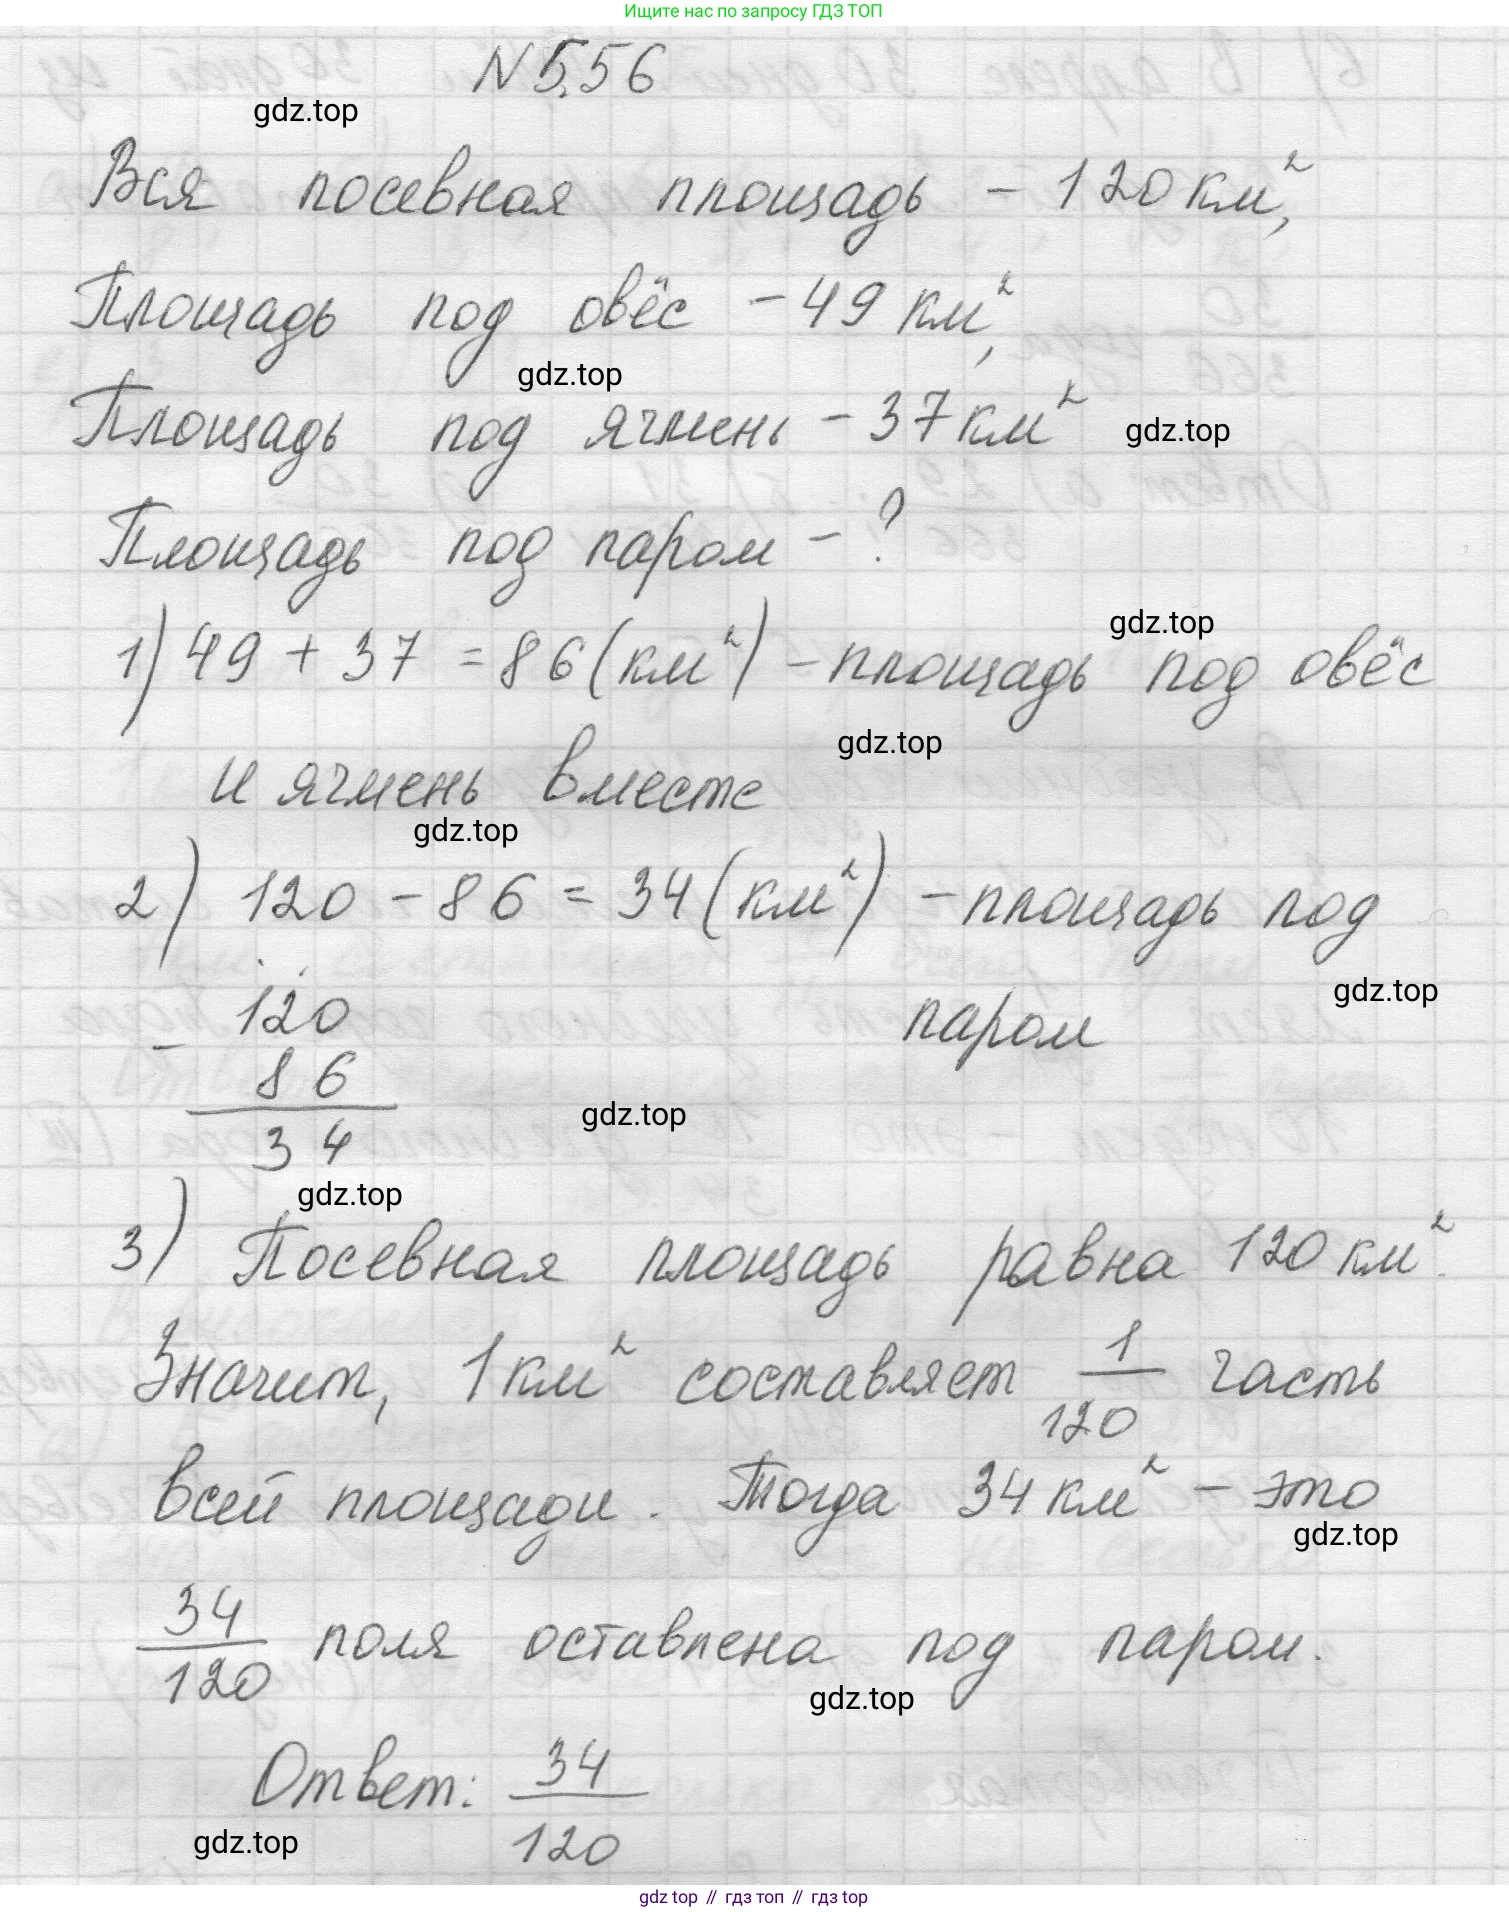 Ищите нас по запросу ГДЗ ТОП
N 5.56
gdz.top
Вся посевная площадь - 120 км²,
Площадь под овёс - 49 км²,
gdz.top
Площадь под ячмень - 37 км²
gdz.top
Площадь под паром - ?
gdz.top
1) 49 + 37 = 86 (км²) - площадь под овёс
gdz.top
и ячмень вместе
gdz.top
2) 120 - 86 = 34 (км²) - площадь под
gdz.top
паром
120
-
86
34
gdz.top
gdz.top
3) Посевная площадь равна 120 км².
Значит, 1 км² составляет 1/120 часть
всей площади. Тогда 34 км² - это
gdz.top
34/120 поля оставлена под паром.
gdz.top
Ответ: 34/120
gdz.top
gdz top // гдз топ // гдз top